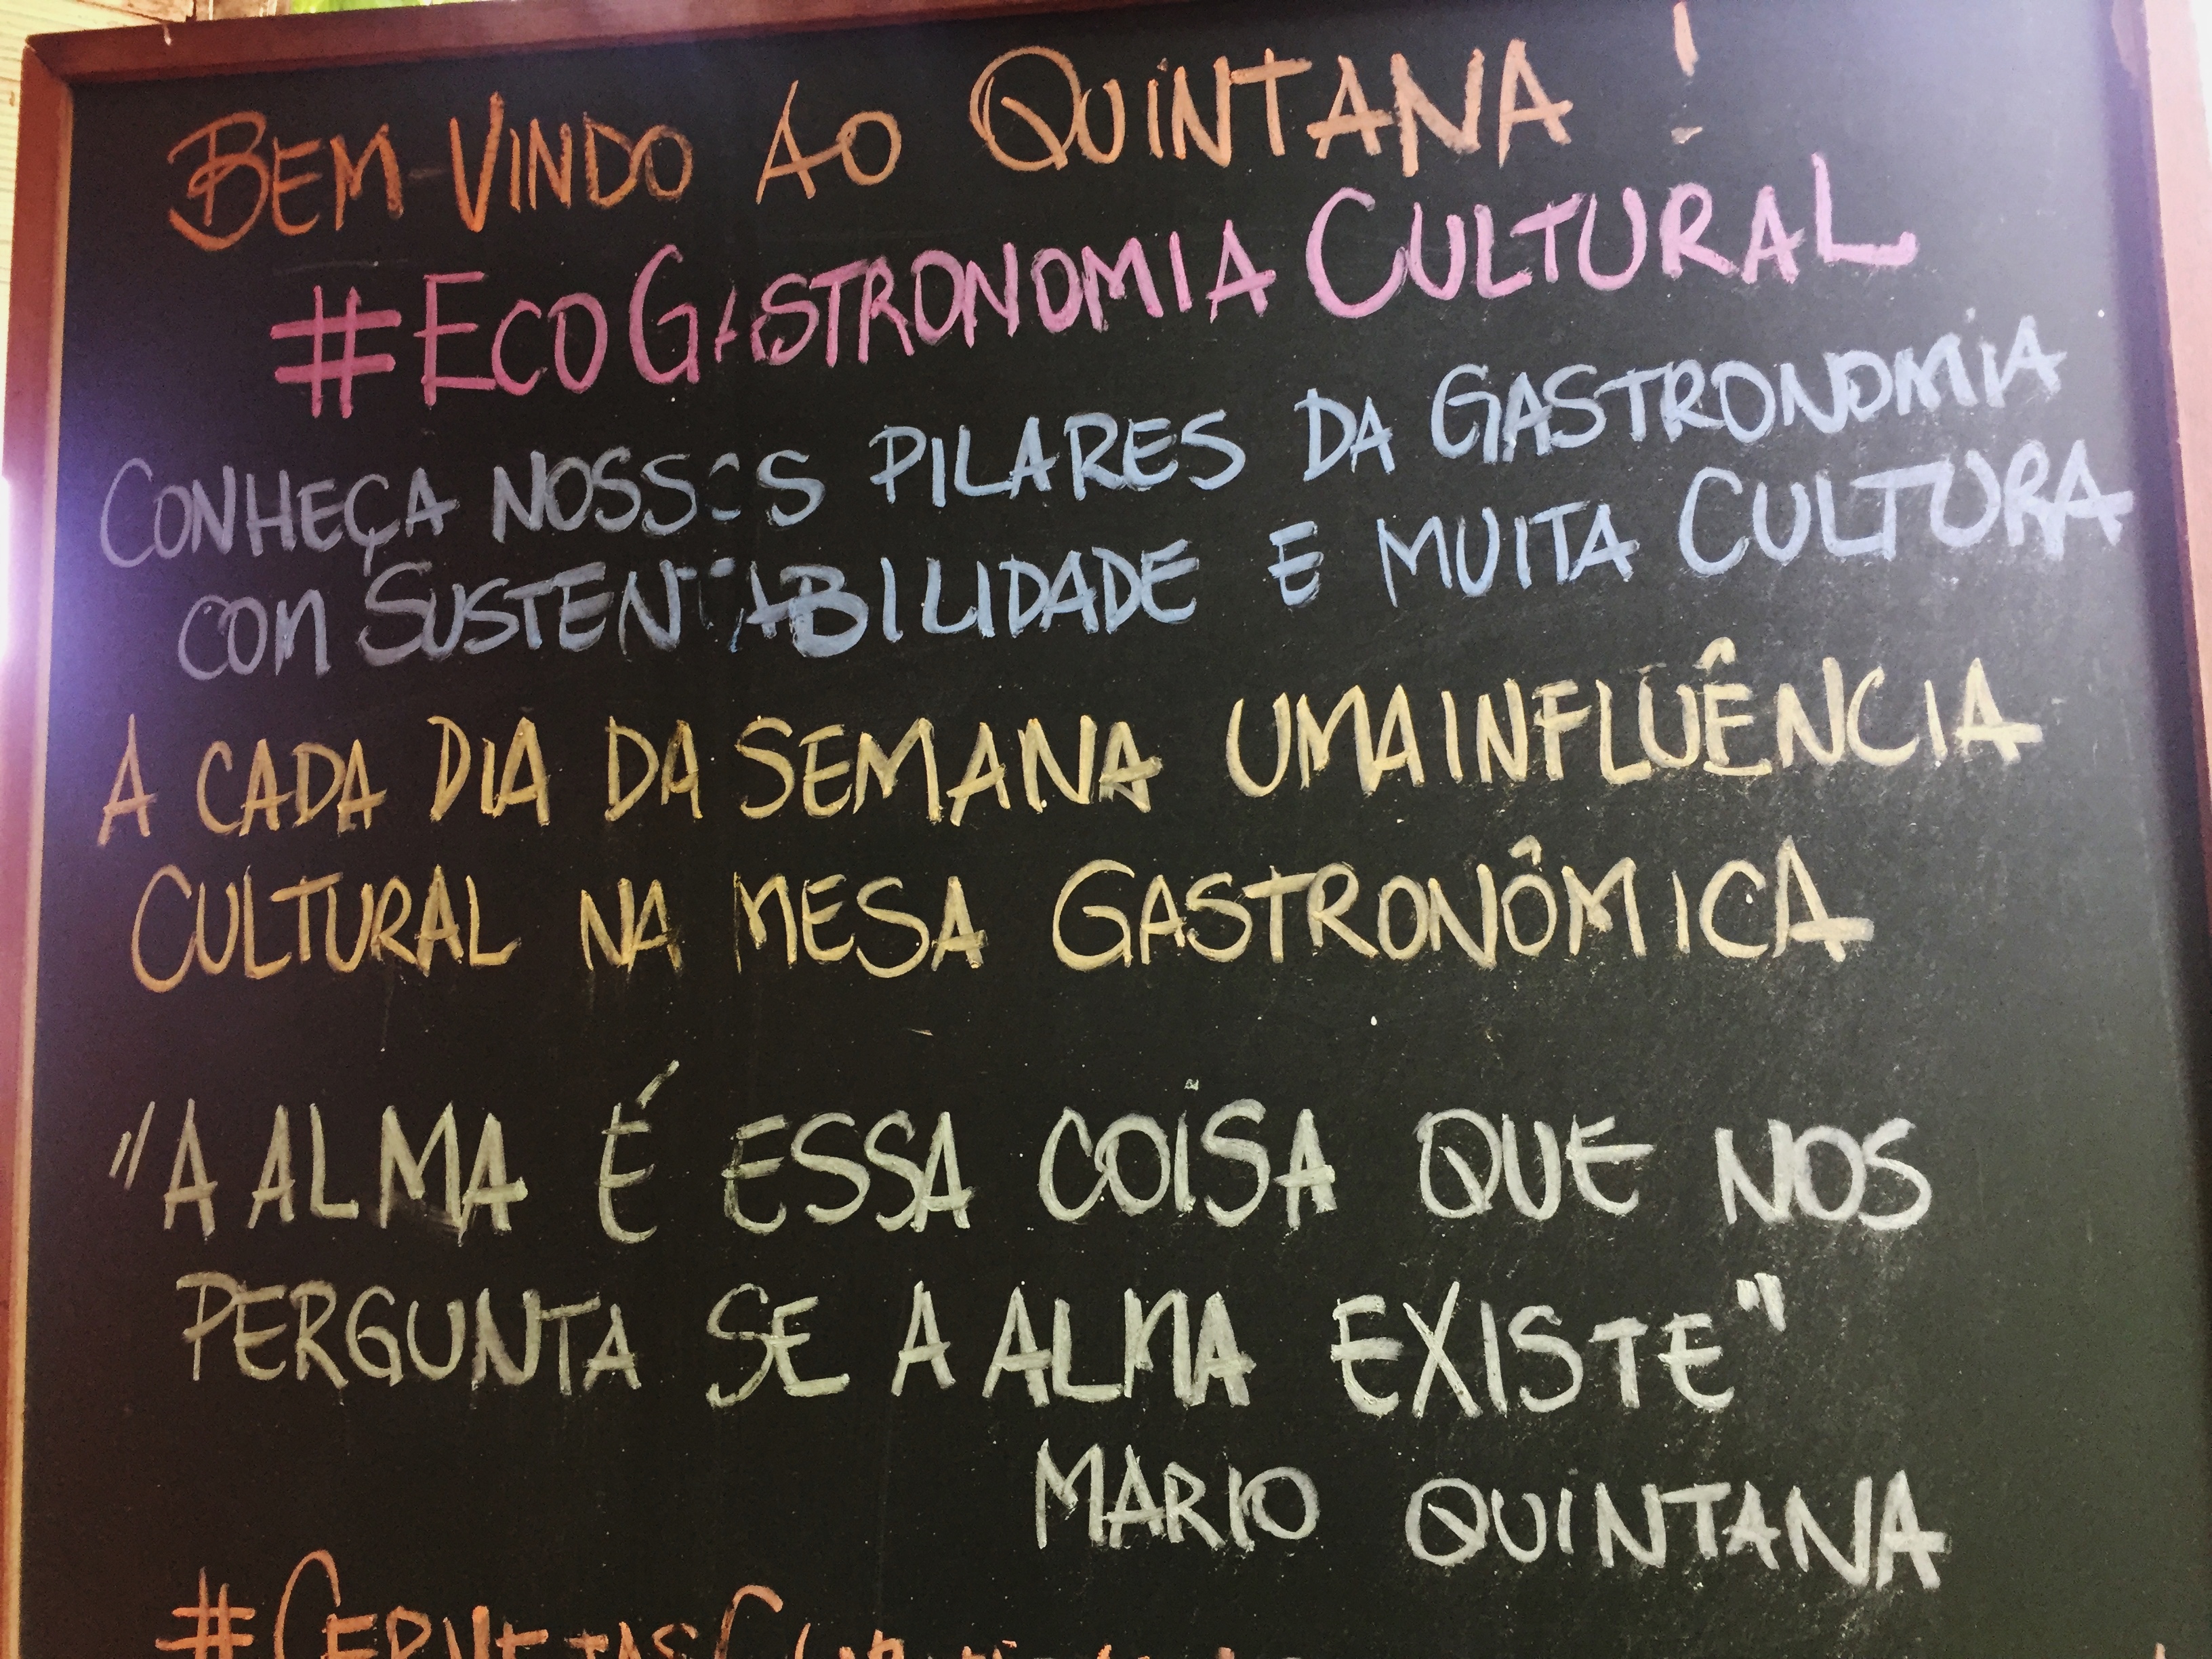 BEM-VINDO AO QUINTANA!
#ECOGASTRONOMIA CULTURAL
CONHEÇA NOSSOS PILARES DA GASTRONOMIA
COM SUSTENTABILIDADE E MUITA CULTURA
A CADA DIA DA SEMANA UMA INFLUÊNCIA
CULTURAL NA MESA GASTRONÔMICA
"A ALMA É ESSA COISA QUE NOS
PERGUNTA SE A ALMA EXISTE"
MARIO QUINTANA